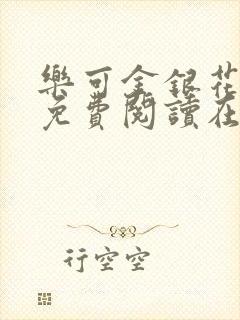 樂可金銀花
免費閱讀在
行空空